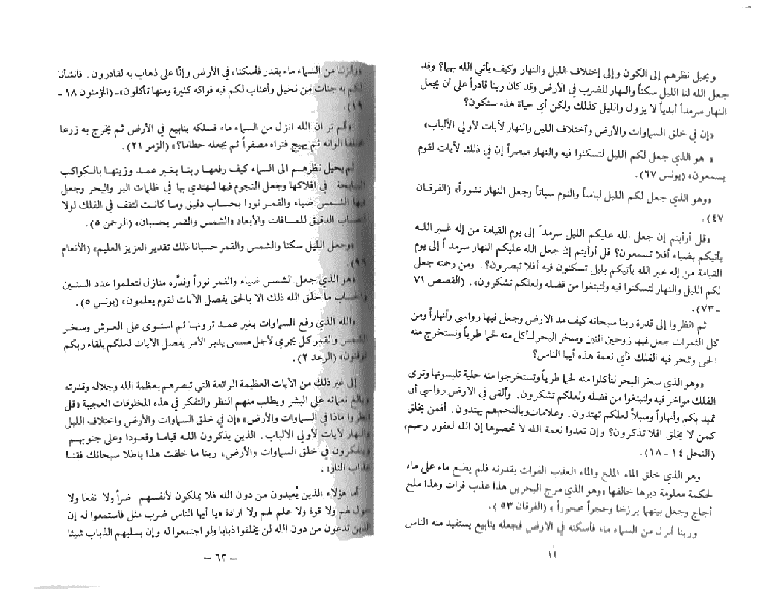 ويحيل نظرهم إلى الكون وإلى إختلاف الليل والنهار وكيف يأتي الله بهما؟ وقد
جعل الله لنا الليل سكناً والنهار للضرب في الأرض وقد كان ربنا قادراً على أن يجعل
النهار سرمداً أبدياً لا يزول والليل كذلك ولكن أي حياة هذه ستكون؟
«إن في خلق السماوات والأرض وأختلاف الليل والنهار لآيات لأولي الألباب»
« هو الذي جعل لكم الليل لتسكنوا فيه والنهار مبصراً إن في ذلك لآيات لقوم
يسمعون» (يونس ٦٧).
«وهو الذي جعل لكم الليل لباساً والنوم سباتاً وجعل النهار نشوراً» (الفرقان
٤٧).
«قل أرأيتم إن جعل الله عليكم الليل سرمداً إلى يوم القيامة من إله غير الله
يأتيكم بضياء أفلا تسمعون؟ قل أرأيتم إن جعل الله عليكم النهار سرمداً إلى يوم
القيامة من إله غير الله يأتيكم بليل تسكنون فيه أفلا تبصرون؟ ومن رحمته جعل
لكم الليل والنهار لتسكنوا فيه ولتبتغوا من فضله ولعلكم تشكرون». (القصص ٧١
– ٧٣).
ثم انظروا إلى قدرة ربنا سبحانه كيف مد الأرض وجعل فيها رواسي وأنهاراً ومن
كل الثمرات جعل فيها زوجين اثنين وسخر البحر لنأكل منه لحماً طرياً ونستخرج منه
الحلي وتمخر فيه الفلك فأي نعمة هذه أيها الناس؟
«وهو الذي سخر البحر لتأكلوا منه لحماً طرياً وتستخرجوا منه حلية تلبسونها وترى
الفلك مواخر فيه ولتبتغوا من فضله ولعلكم تشكرون. وألقى في الأرض رواسي أن
تميد بكم وأنهاراً وسبلاً لعلكم تهتدون. وعلامات وبالنجم هم يهتدون. أفمن يخلق
كمن لا يخلق افلا تذكرون؟ وإن تعدوا نعمة الله لا تحصوها إن الله لغفور رحيم»
(النحل ١٤ – ١٨).
وهو الذي خلق الماء الملح والماء العذب الفرات بقدرته فلم يضع ماء على ماء
لحكمة معلومة دبرها خالقها «وهو الذي مرج البحرين هذا عذب فرات وهذا ملح
أجاج وجعل بينهما برزخا وحجراً محجوراً» (الفرقان ٥٣).
وربنا أنزل من السماء ماء فأسكنه في الأرض فجعله ينابيع يستفيد منه الناس
«وأنزلنا من السماء ماء بقدر فأسكناه في الأرض وإنا على ذهاب به لقادرون. فانشأنا
لكم به جنات من نخيل وأعناب لكم فيه فواكه كثيرة ومنها تأكلون» (المؤمنون ١٨ –
١٩).
«ألم تر ان الله انزل من السماء ماء فسلكه ينابيع في الأرض ثم يخرج به زرعا
مختلفا الوانه ثم يهيج فتراه مصفراً ثم يجعله حطاما؟» (الزمر ٢١).
ثم يحيل نظرهم الى السماء كيف رفعها ربنا بغير عمد وزينها بالكواكب
السابحة في افلاكها وجعل النجوم فيها لنهتدي بها في ظلمات البر والبحر وجعل
فيها الشمس ضياء والقمر نورا بحساب دقيق وما كانت لتقف في الفلك لولا
الحساب الدقيق للمسافات والأبعاد «الشمس والقمر بحسبان» (الرحمن ٥).
«وجعل الليل سكنا والشمس والقمر حسبانا ذلك تقدير العزيز العليم» (الأنعام
٩٦).
«هو الذي جعل الشمس ضياء والقمر نوراً وقدره منازل لتعلموا عدد السنين
والحساب ما خلق الله ذلك الا بالحق يفصل الآيات لقوم يعلمون» (يونس ٥).
«الله الذي رفع السماوات بغير عمد ترونها ثم استوى على العرش وسخر
الشمس والقمر كل يجري لأجل مسمى يدبر الأمر يفصل الآيات لعلكم بلقاء ربكم
توقنون» (الرعد ٢).
إلى غير ذلك من الآيات العظيمة الرائعة التي تبصرهم بعظمة الله وجلاله وقدرته
وبالغ نعمائه على البشر ويطلب منهم النظر والتفكر في هذه المخلوقات العجيبة «قل
انظروا ماذا في السماوات والأرض» «إن في خلق السماوات والأرض واختلاف الليل
والنهار لآيات لأولي الألباب. الذين يذكرون الله قياما وقعودا وعلى جنوبهم
ويتفكرون في خلق السماوات والأرض، ربنا ما خلقت هذا باطلا سبحانك فقنا
عذاب النار».
أما هؤلاء الذين يُعبدون من دون الله فلا يملكون لأنفسهم ضراً ولا نفعا ولا
حول لهم ولا قوة ولا علم لهم ولا ارادة «يا أيها الناس ضرب مثل فاستمعوا له إن
الذين تدعون من دون الله لن يخلقوا ذبابا ولو اجتمعوا له وإن يسلبهم الذباب شيئا
– ٦٣ –